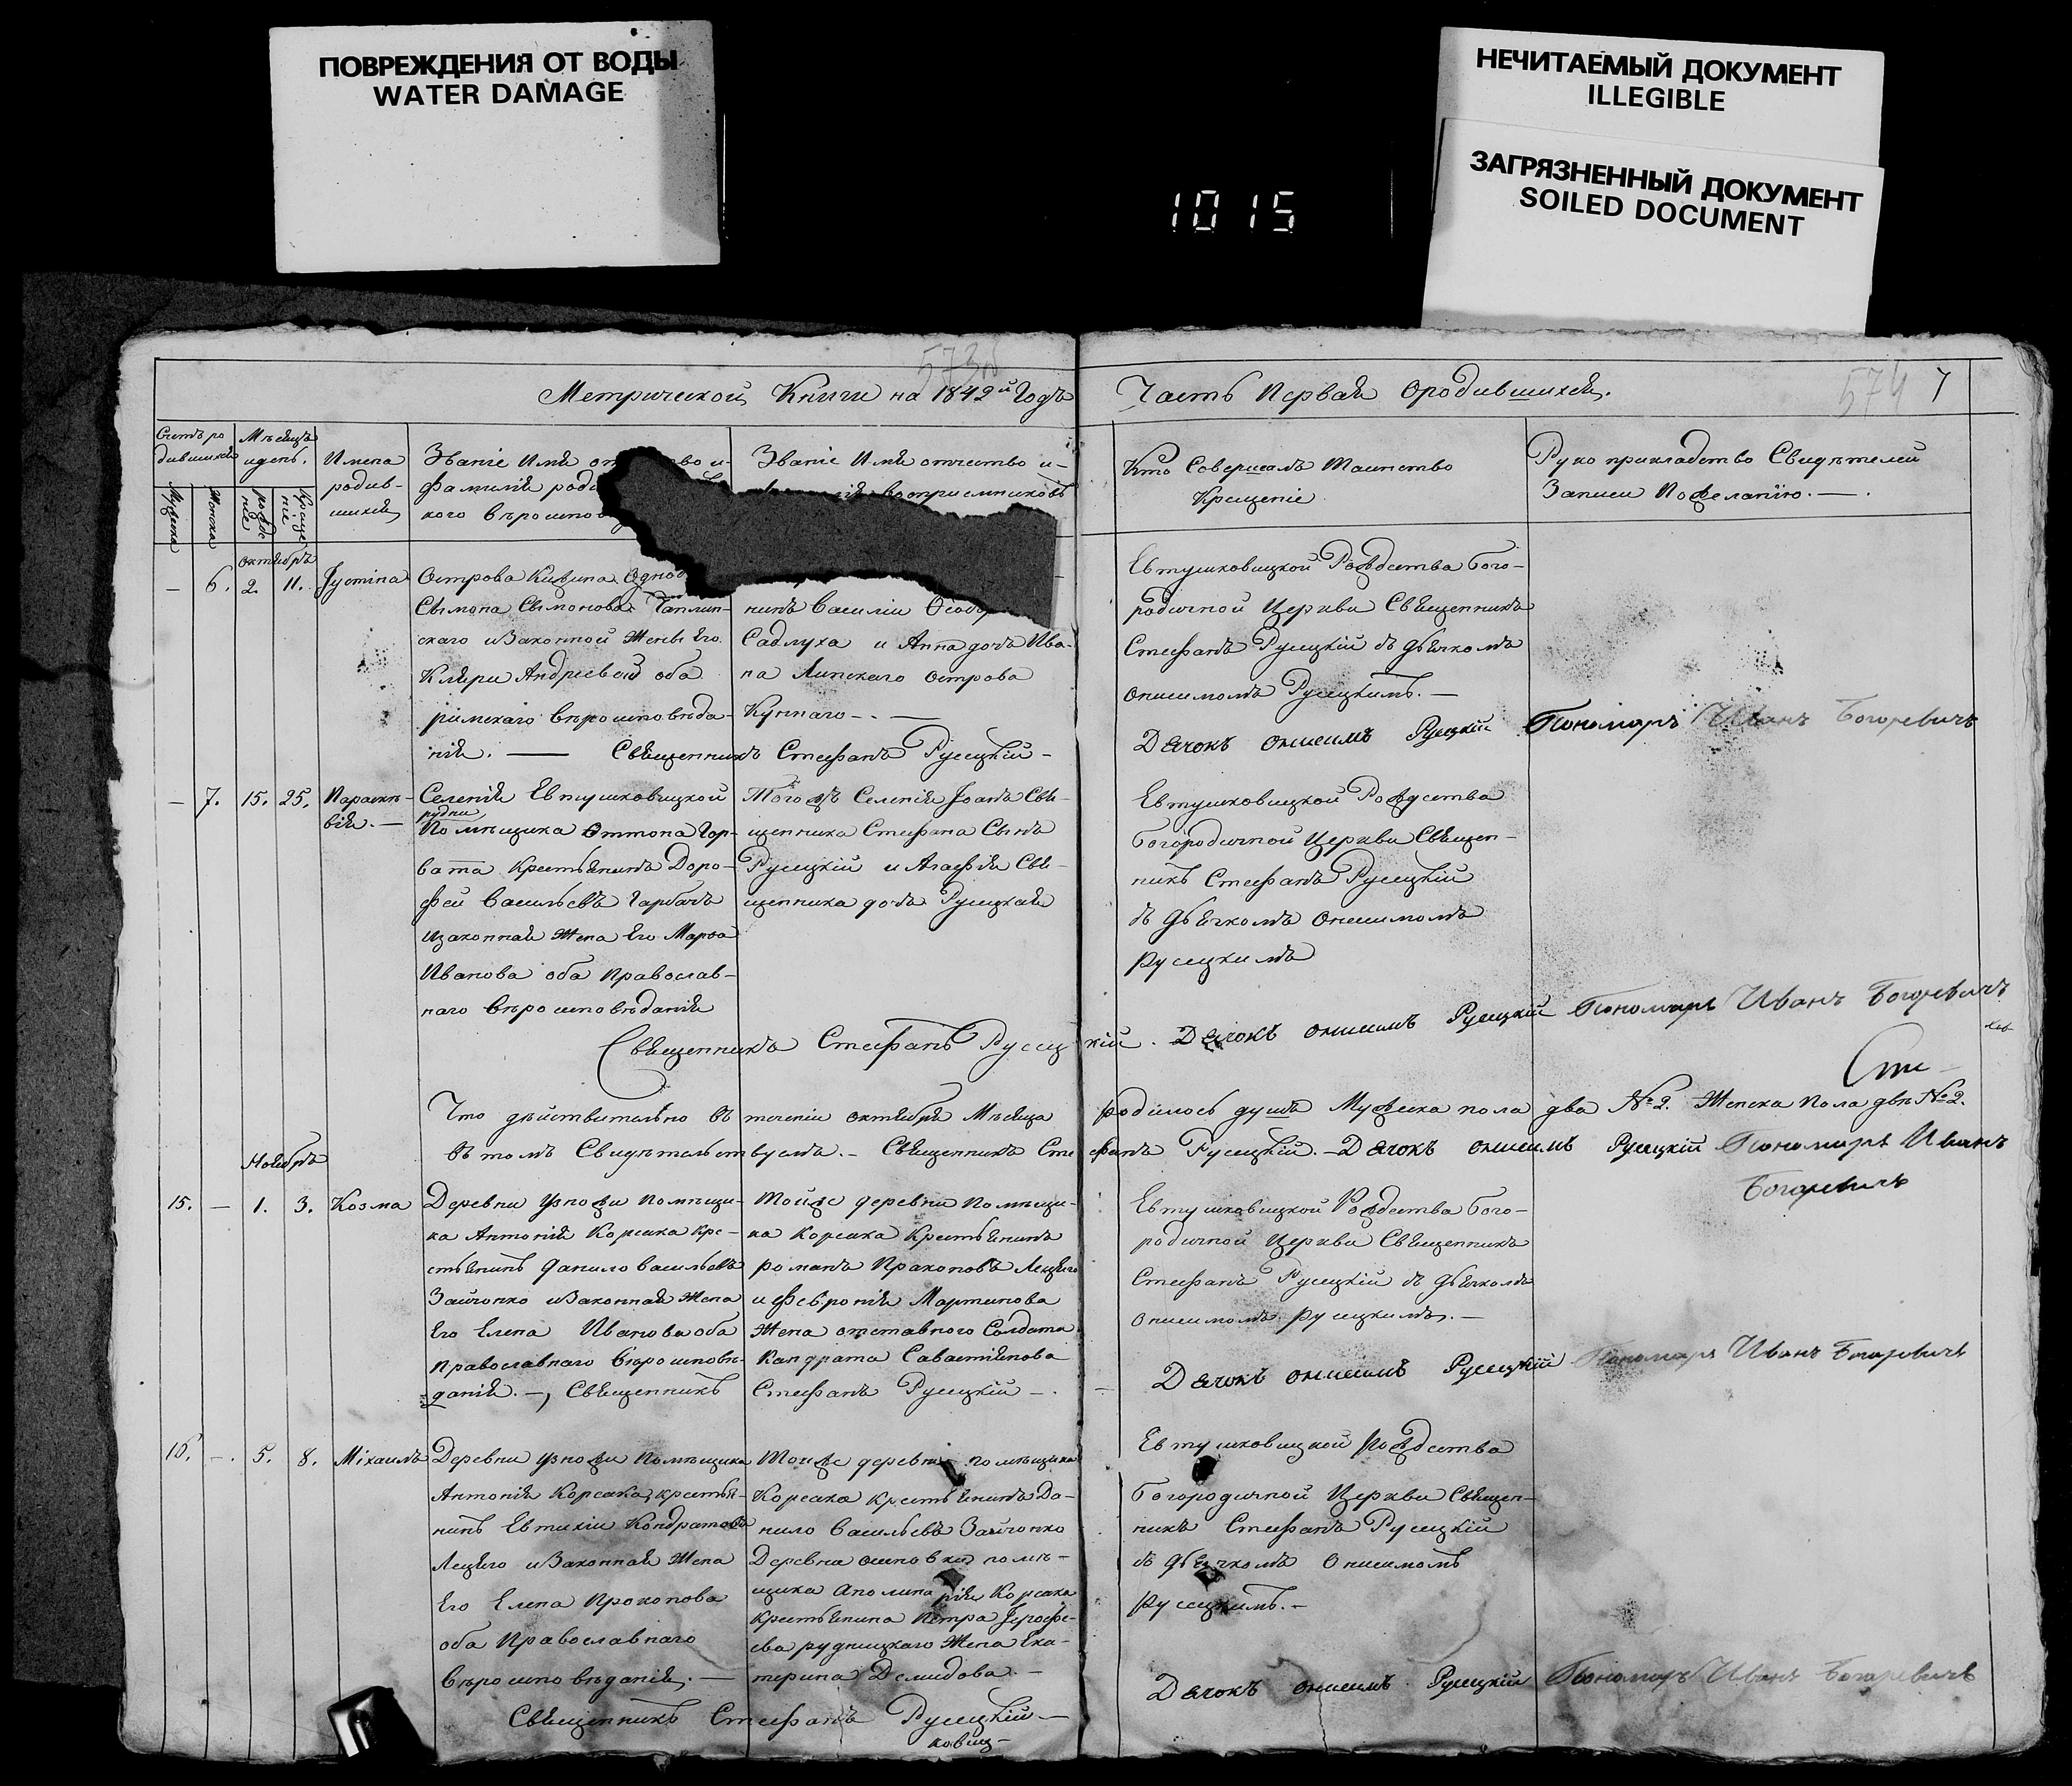 ПОВРЕЖДЕНИЯ ОТ ВОДЫ
WATER DAMAGE
НЕЧИТАЕМЫЙ ДОКУМЕНТ
ILLEGIBLE
ЗАГРЯЗНЕННЫЙ ДОКУМЕНТ
SOILED DOCUMENT
1015
573об
Метрической Книги на 1842й Годъ
Часть Первая О родившихся.
574 7
Счетъ ро
дившихся
Мѣсяцъ
и день.
Имена
родив-
шихся
Званіе Имя
фамилія
кого вѣроисповѣд
Званіе Имя отчество и
воспріемниковъ
Кто Совершалъ Таинство
Крещеніе
Рукоприкладство Свидѣтелей
Записи По желанію. —
Мужска
Женска
рожде
ніе
Креще
ніе
Октябрь
— 6. 2. 11. Іустина
Острова Одно
Сымона Сымонова
скаго и Законной Жены Его
Андреевой оба
римскаго вѣроисповѣда-
нія. — Священникъ Стефанъ Русецкій —
нинъ Василій
Садлуха и Анна дочь Ива-
на Липскаго Острова
Евтушковицкой Рождества Бого-
родичной Церкви Священникъ
Стефанъ Русецкій съ дьячкомъ
Онисимомъ Русецкимъ. —
Дячокъ Онисимъ Русецкій Пономарь Иванъ Богоревичъ
— 7. 15. 25. Параскѣ-
вія. —
Селенія Евтушковицкой
рудни
Помѣщика Оттона Гор-
вата Крестьянинъ Доро-
фей Васильевъ Гарбачъ
и законная Жена Его Марѳа
Иванова оба Православ-
наго вѣроисповѣданія
Того жъ Селенія Іоанъ Свя-
щенника Стефана Сынъ
Русецкій и Агафія Свя-
щенника дочь Русецкая
Евтушковицкой Рождества
Богородичной Церкви Священ-
никъ Стефанъ Русецкій
съ дьячкомъ Онисимомъ
Русецкимъ
Священникъ Стефанъ Русецкій. Дячокъ Онисимъ Русецкій Пономарь Иванъ Богоревичъ
Что дѣйствительно въ теченіи Октября Мѣсяца родилось душъ Мужеска пола два №2. Женска Пола двѣ №2.
въ томъ Свидѣтельствуемъ. — Священникъ Стефанъ Русецкій. — Дячокъ Онисимъ Русецкій Пономарь Иванъ
Богоревичъ
Ноябрь
15. — 1. 3. Козма
Деревни Узножи Помѣщи-
ка Антонія Корсака кре-
стьянинъ Данило Васильевъ
Зайчонко и Законная Жена
Его Елена Иванова оба
Православнаго Вѣроисповѣ-
данія. —, Священникъ Стефанъ Русецкій —.
Той же деревни Помѣщи-
ка Корсака Крестьянинъ
романъ Пракоповъ
и Февронія Мартинова
Жена отставного Солдата
Кандрата Савастіянова
Евтушковицкой Рождества Бого-
родичной Церкви Священникъ
Стефанъ Русецкій съ дьячкомъ
Онисимомъ Русецкимъ. —
Дячокъ Онисимъ Русецкій Пономарь Иванъ Богоревичъ
16. —. 5. 8. Міхаилъ
Деревни Узножи Помѣщика
Антонія Корсака, крестья-
нинъ Евтихій Кондратовъ
и Законная Жена
Его Елена Прокопова
оба Православнаго
Вѣроисповѣданія. —
Той же деревни помѣщика
Корсака крестьянинъ Да-
нило Васильевъ Зайчонко
Деревни помѣ-
щика Аполинарія Корсака
Крестьянина Петра Іерофе-
ева рудницкаго Жена Ека-
терина Демидова. —
Евтушковицкой Рождества
Богородичной Церкви Священ-
никъ Стефанъ Русецкій
съ дьячкомъ Онисимомъ
Русецкимъ. —
Дячокъ Онисимъ Русецкій Пономарь Иванъ Богоревичъ
Священникъ Стефанъ Русецкій —